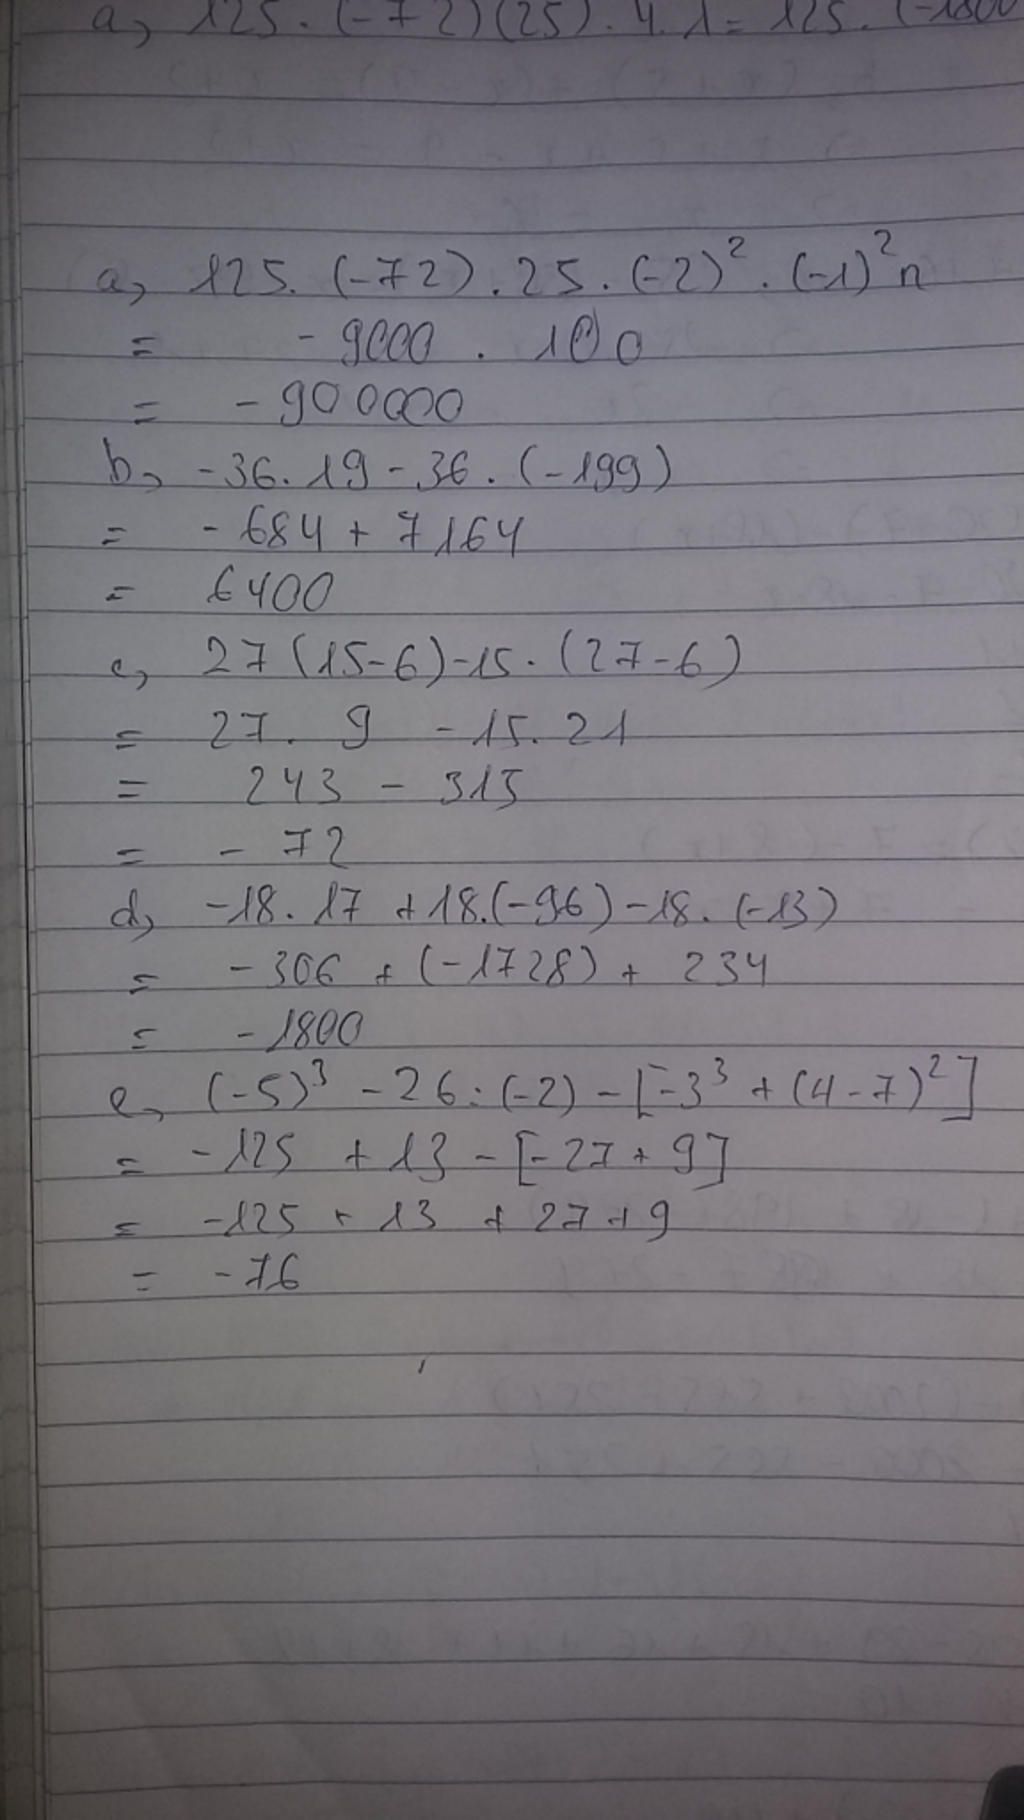 a, 125. (-72)(25). 4. 1 = 125. (-1800
a, 125. (-72). 25. (-2)² . (-1)²n
= -9000 . 100
= -900000
b, -36. 19 - 36. (-199)
= -684 + 7164
= 6400
c, 27 (15-6) - 15. (27-6)
= 27. 9 - 15. 21
= 243 - 315
= - 72
d, -18. 17 + 18.(-96) - 18. (-13)
= -306 + (-1728) + 234
= -1800
e, (-5)³ - 26 : (-2) - [-3³ + (4-7)²]
= -125 + 13 - [-27 + 9]
= -125 + 13 + 27 + 9
= -76